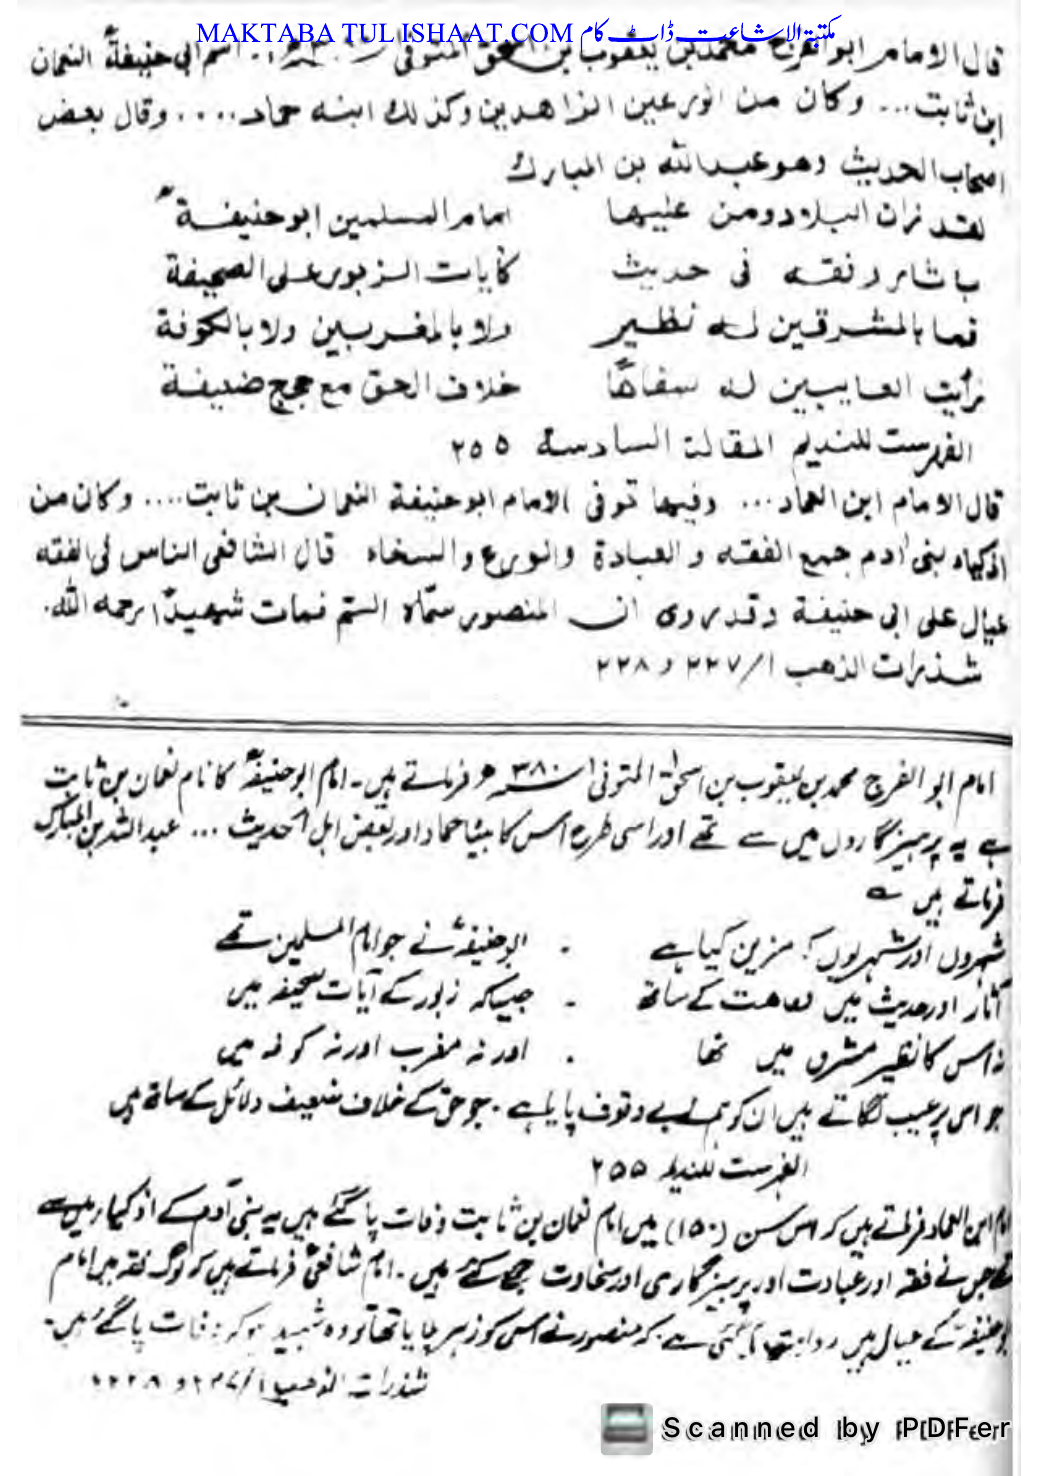 MAKTABA TUL ISHAAT.COM مکتبة الاشاعت ڈاٹ کام
قال الامام ابو الفرج محمد بن يعقوب بن اسحق المتوفى اسم ابى حنيفةؒ النعمان
ابن ثابت... وكان من الورعين الزاهدين وكذلك ابنه حماد.... وقال بعض
اصحاب الحديث وهو عبد الله بن المبارك
لقد زان البلاد ومن عليها امام المسلمين ابو حنيفةؒ
باثار وفقه فى حديث كآيات الزبور على الصحيفة
فما بالمشرقين له نظير ولا بالمغربين ولا بالكوفة
رأيت العايبين له سفاهًا خلاف الحق مع حجج ضعيفة
الفهرست للنديم المقالة السادسة ٢٥٥
قال الامام ابن العماد... وفيها توفى الامام ابو حنيفة النعمان بن ثابت.... وكان من
اذكياء بنى آدم جمع الفقه و العبادة والورع والسخاء قال الشافعى الناس فى الفقه
عيال على ابى حنيفة وقد روى ان المنصور سمّاه السم فمات شهيدًا رحمه الله.
شذرات الذهب ١/٢٢٧ و ٢٢٨
امام ابو الفرج محمد بن یعقوب بن اسحٰق المتوفی ٣٨٠ھ فرماتے ہیں۔ امام ابو حنیفہؒ کا نام نعمان بن ثابت
ہے یہ پرہیزگاروں میں سے تھے اور اسی طرح اس کا بیٹا حماد اور بعض اہل الحدیث ... عبداللہ بن المبارک
فرماتے ہیں ؎
شہروں اور شہریوں کو مزین کیا ہے ۔ ابو حنیفہؒ نے جو امام المسلمین تھے
آثار اور حدیث میں فقاہت کے ساتھ ۔ جیسا کہ زبور کے آیات صحیفہ میں
نہ اس کا نظیر مشرق میں تھا ۔ اور نہ مغرب اور نہ کوفہ میں
جو اس پر عیب لگاتے ہیں ان کو ہم نے بے وقوف پایا ہے۔ جو حق کے خلاف ضعیف دلائل کے ساتھ ہیں
الفہرست للندیم ٢٥٥
امام ابن العماد فرماتے ہیں کہ اس سن (١٥٠) میں امام نعمان بن ثابت وفات پا گئے ہیں یہ بنی آدم کے اذکیا میں سے
تھے جس نے فقہ اور عبادت اور پرہیزگاری اور سخاوت جمع کئے ہیں۔ امام شافعیؒ فرماتے ہیں کہ لوگ فقہ میں امام
ابو حنیفہؒ کے عیال ہیں کہ منصور نے اس کو زہر پلایا تھا تو وہ شہید ہو کر وفات پا گئے ہیں۔
شذرات الذھب ١/٢٢٧ و ٢٢٨
Scanned by PDFer